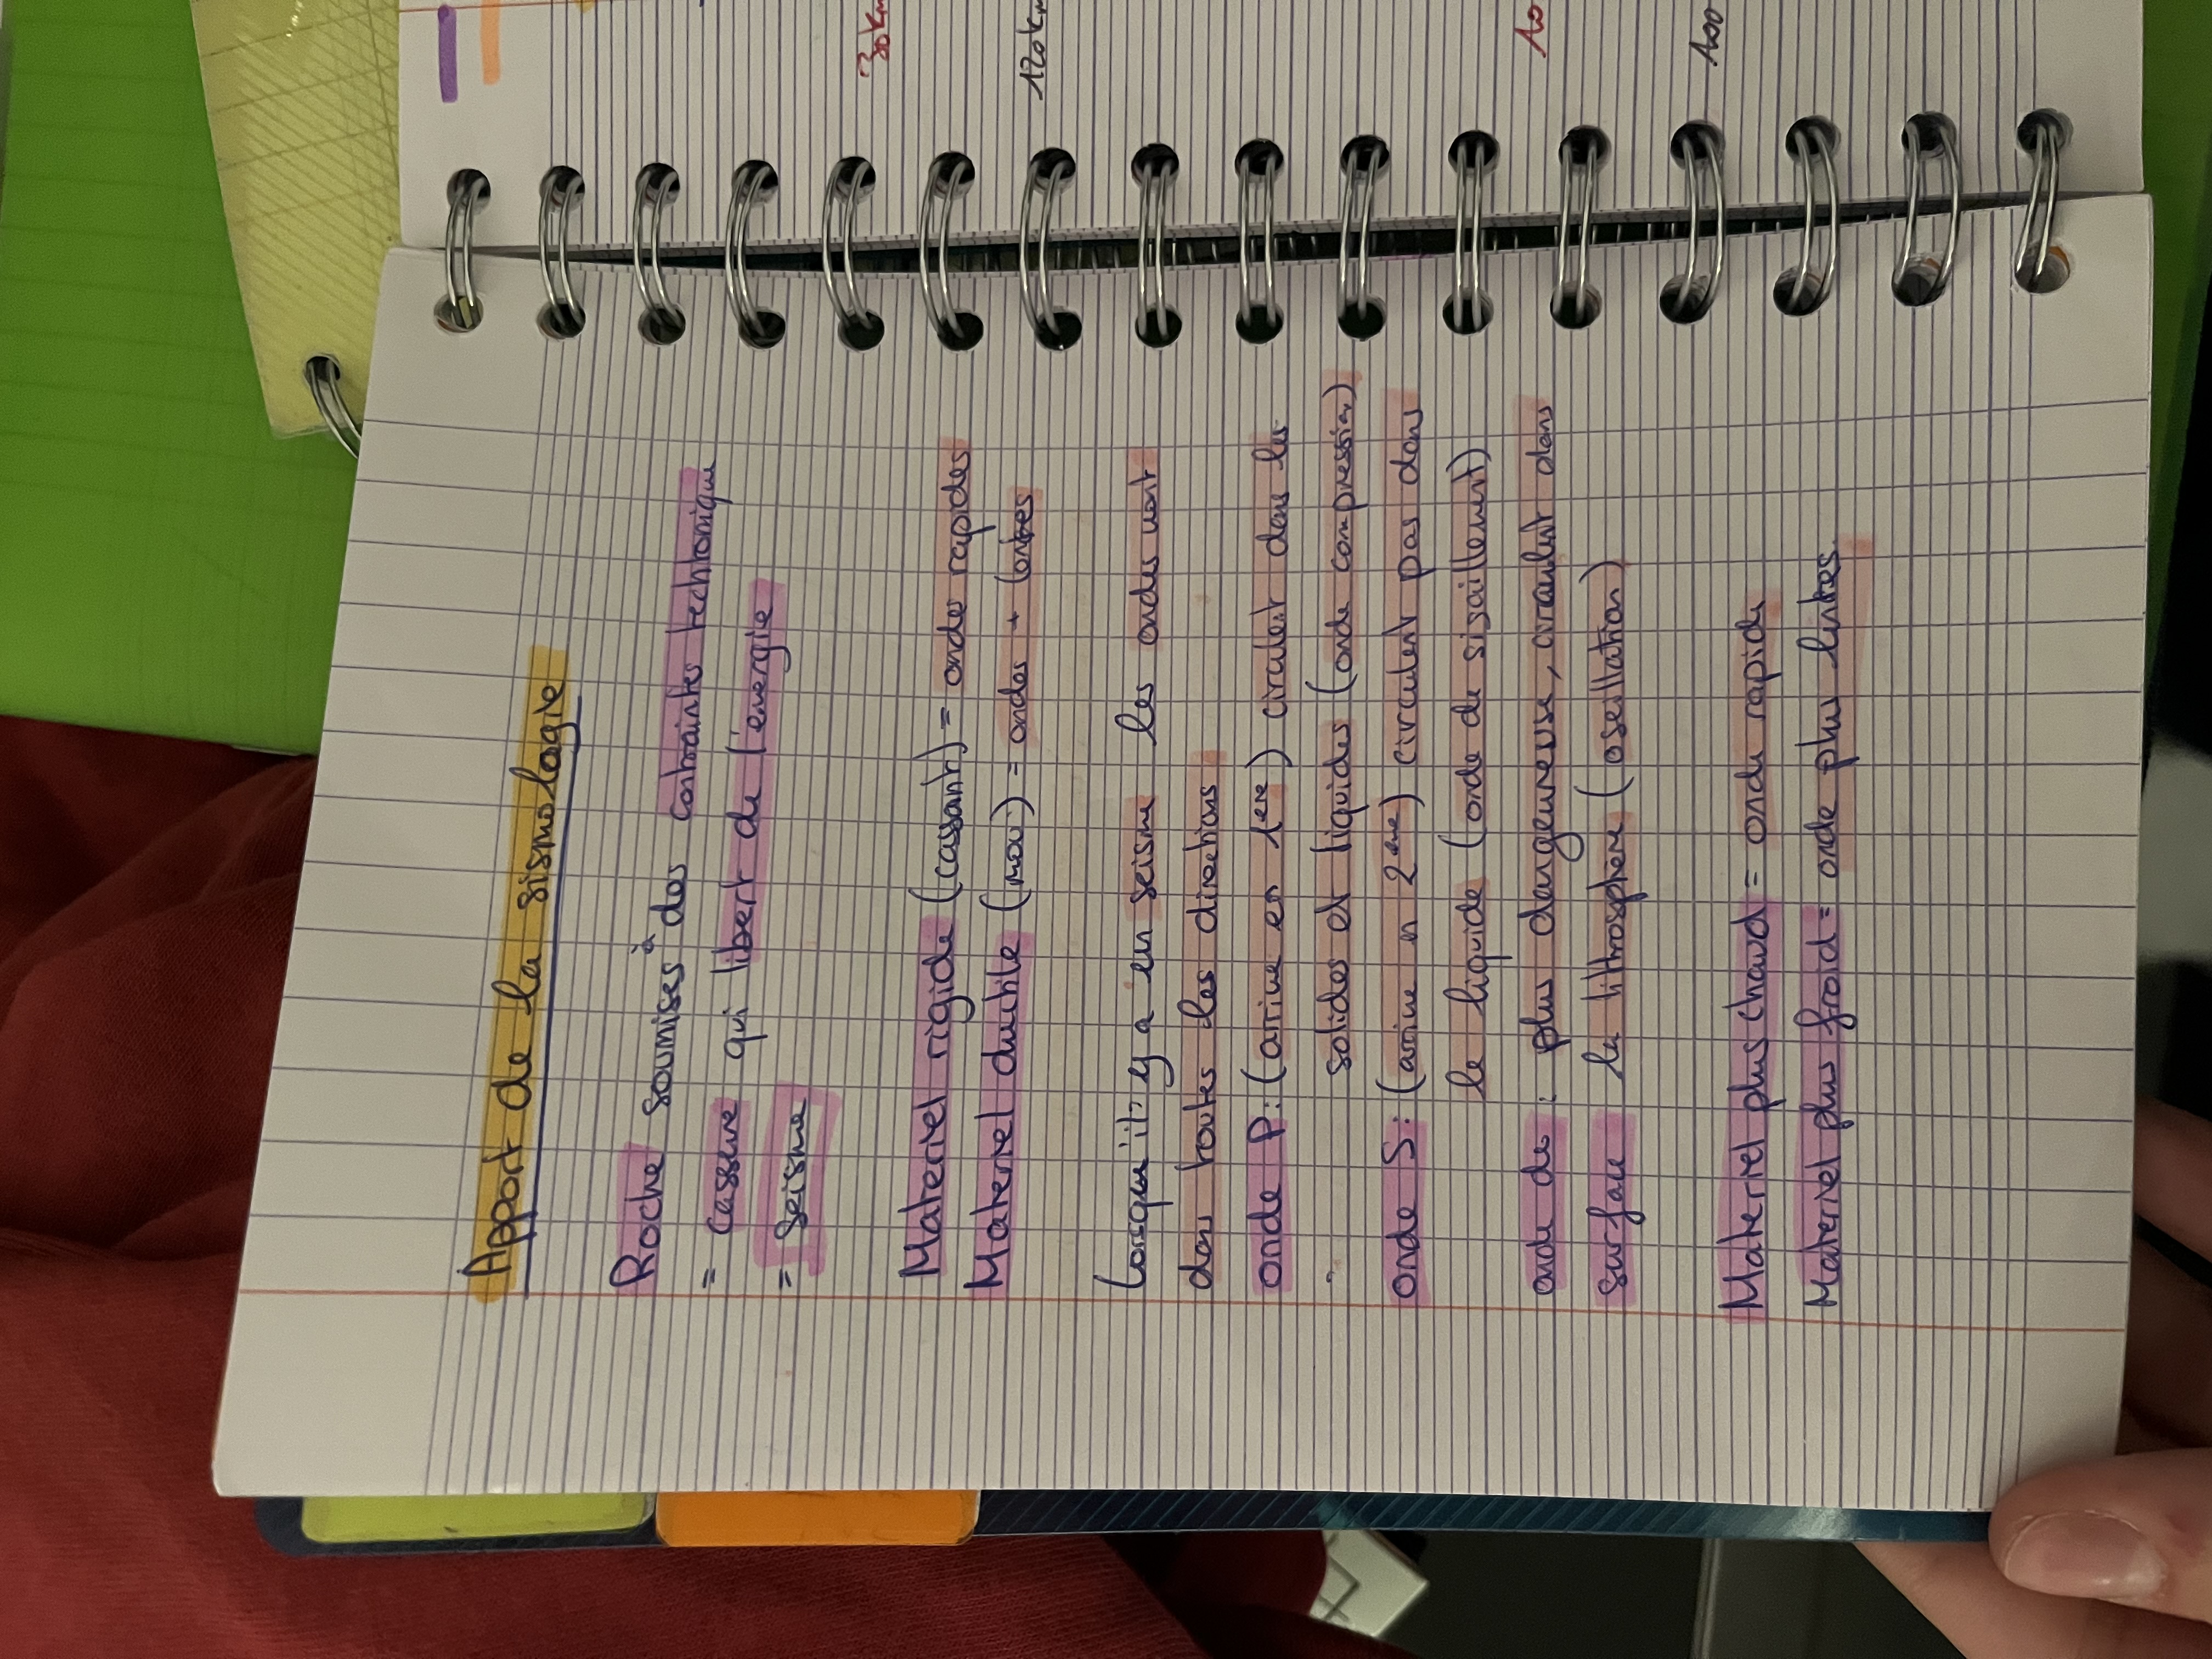 Apport de la sismologie
Roche soumises à des contraintes techtonique
= cassure qui libert de l'énergie
= seisme
Materiel rigide (cassant) = ondes rapides
Materiel ductile (mou) = ondes + lentes
Lorsqu'il y a en seisme les ondes vont
dans toutes les directions.
onde P: (arrive en 1ere) circulent dans les
solides et liquides (onde compression)
onde S: (arrive en 2eme) circulent pas dans
le liquide (onde de sisaillement)
onde de : plus dangeureuse, circulent dans
surface la lithosphère (oseillation)
Materiel plus chaud = onde rapide
Materiel plus froid = onde plus lentes.
30km
120km
10
100